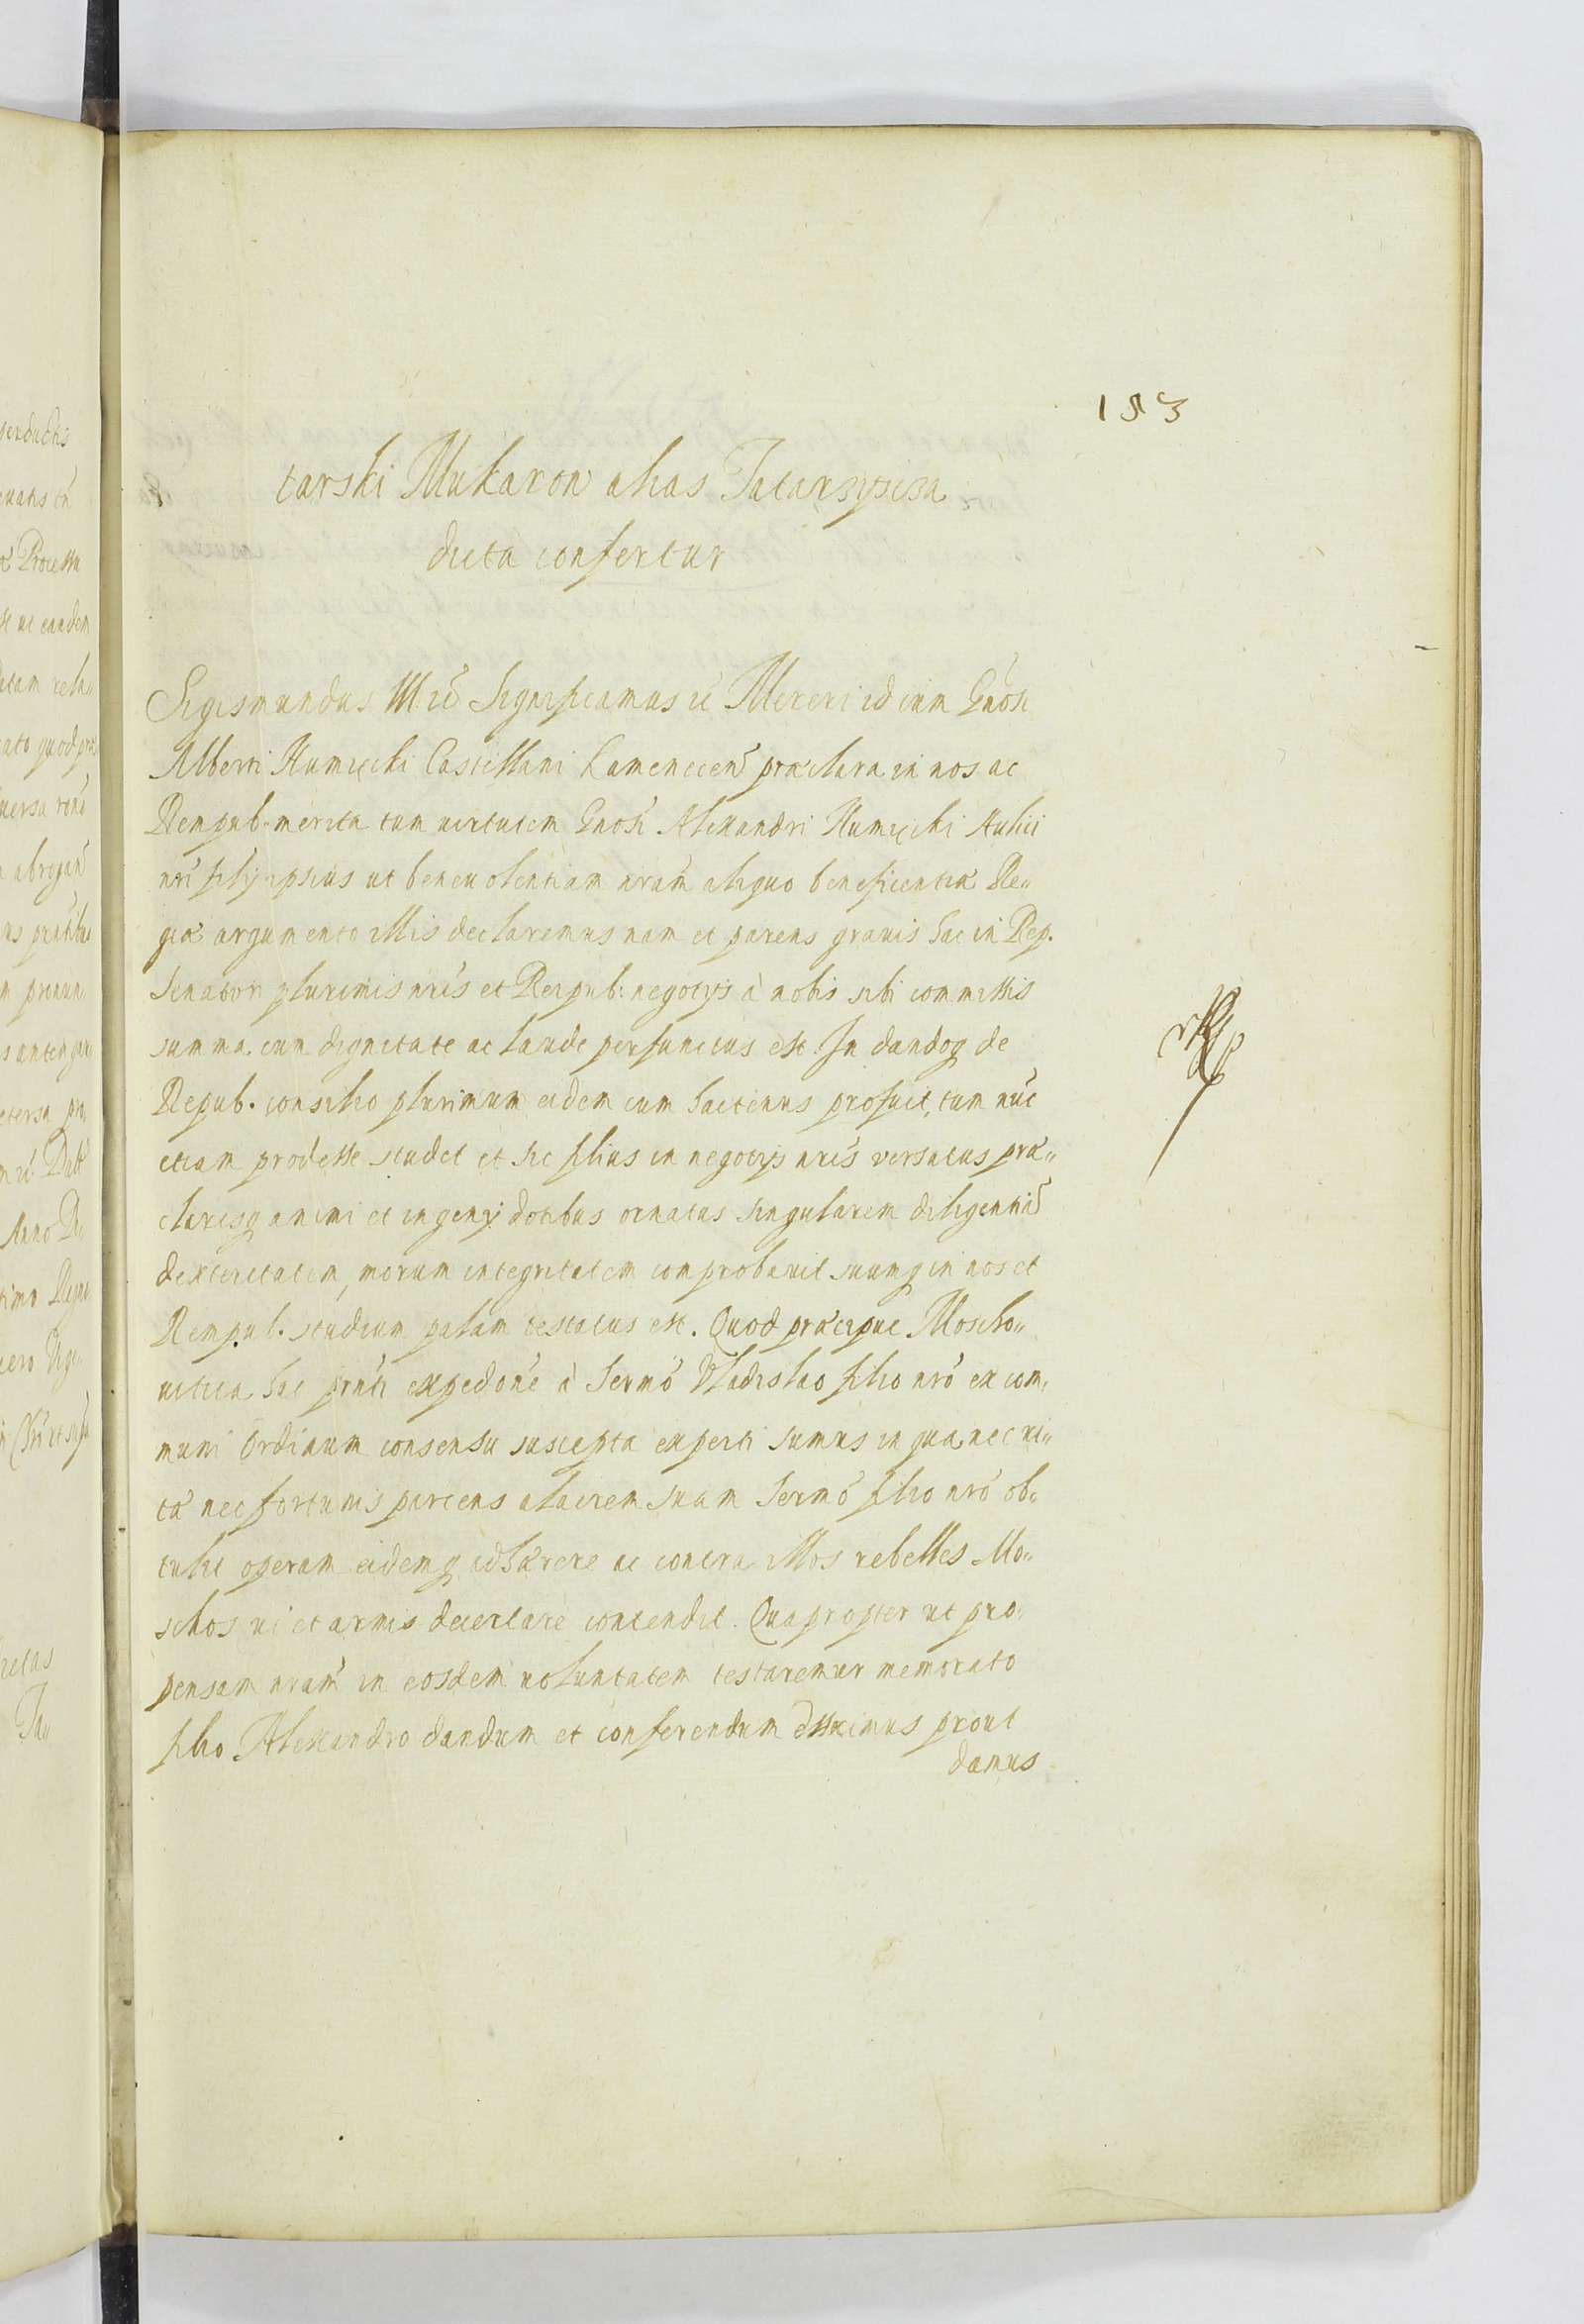 153
tarski Mukaron alias Tatarzyszcza
dicta confertur
Sigismundus III etc Significamus etc Mereri id cum Gnosi
Alberti Humięcki Castellani Camenecen præclara in nos ac
Rempub. merita tum uirtutem Gnosi Alexandri Humięcki Aulici
nri filij ipsius ut beneuolentiam nram aliquo beneficentiæ Re„
giæ argumento illis declaremus nam et parens grauis hac in Rep.
Senator plurimis nris et Reipub: negotijs à nobis sibi commissis
summa cum dignitate ac laude perfunctus est. In dandoq de
Repub. consilio plurimum eidem cum hactenus profuit, tum nuc
etiam prodesse studet et hic filius in negotijs nris versatus præ„
clarisq animi et ingenij dotibus ornatus singularem diligentia
dexteritatem, morum integritatem comprobauit suumq in nos et
Rempub. studium palam testatus est. Quod præcipue Moscho„
uitica hac pnti expedone à Sermo Vladislao filio nro ex com„
muni Ordinum consensu suscepta experti sumus in qua nec ui„
tæ nec fortunis parcens alacrem suam Sermo filio nro ob„
tulit operam eidemq adhærere ac contra illos rebelles Mo„
schos ui et armis decertare contendit. Quapropter ut pro„
pensam nram in eosdem uoluntatem testaremur memorato
filio Alexandro dandum et conferendum duximus prout
damus
perductis
Processu
ut eandem
quod
abrogan
Datt
Anno